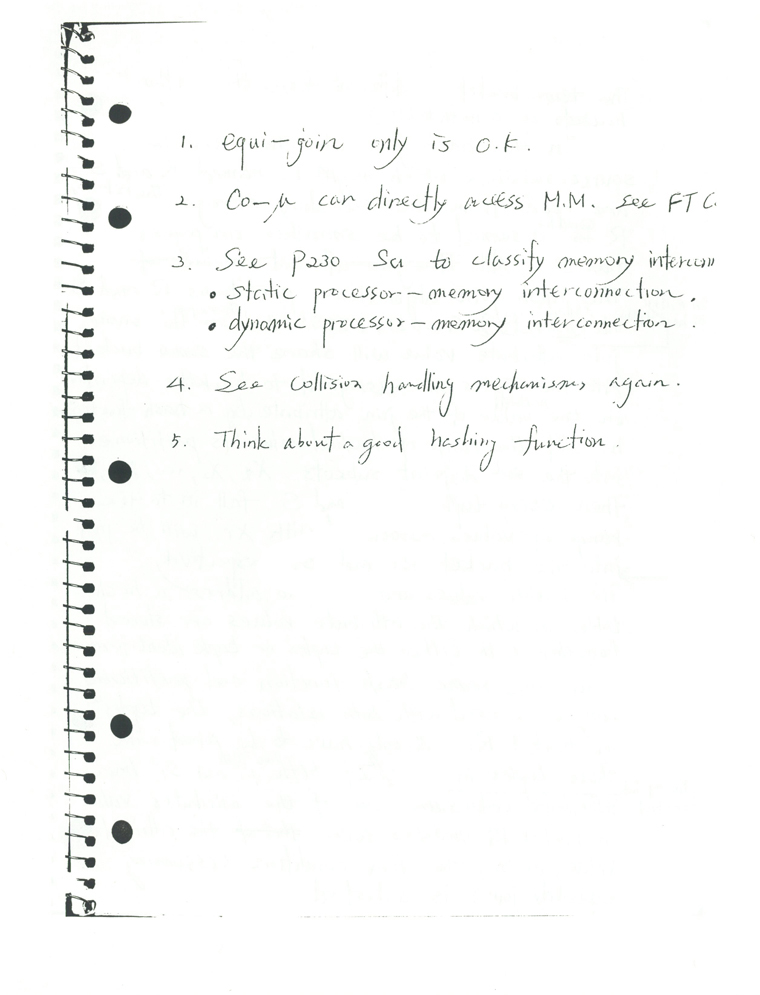 1. equi-join only is O.K.
2. Co-μ can directly access M.M. see FTC.
3. See P230 to classify memory intercon
• static processor-memory interconnection.
• dynamic processor-memory interconnection.
4. See collision handling mechanisms again.
5. Think about a good hashing function.